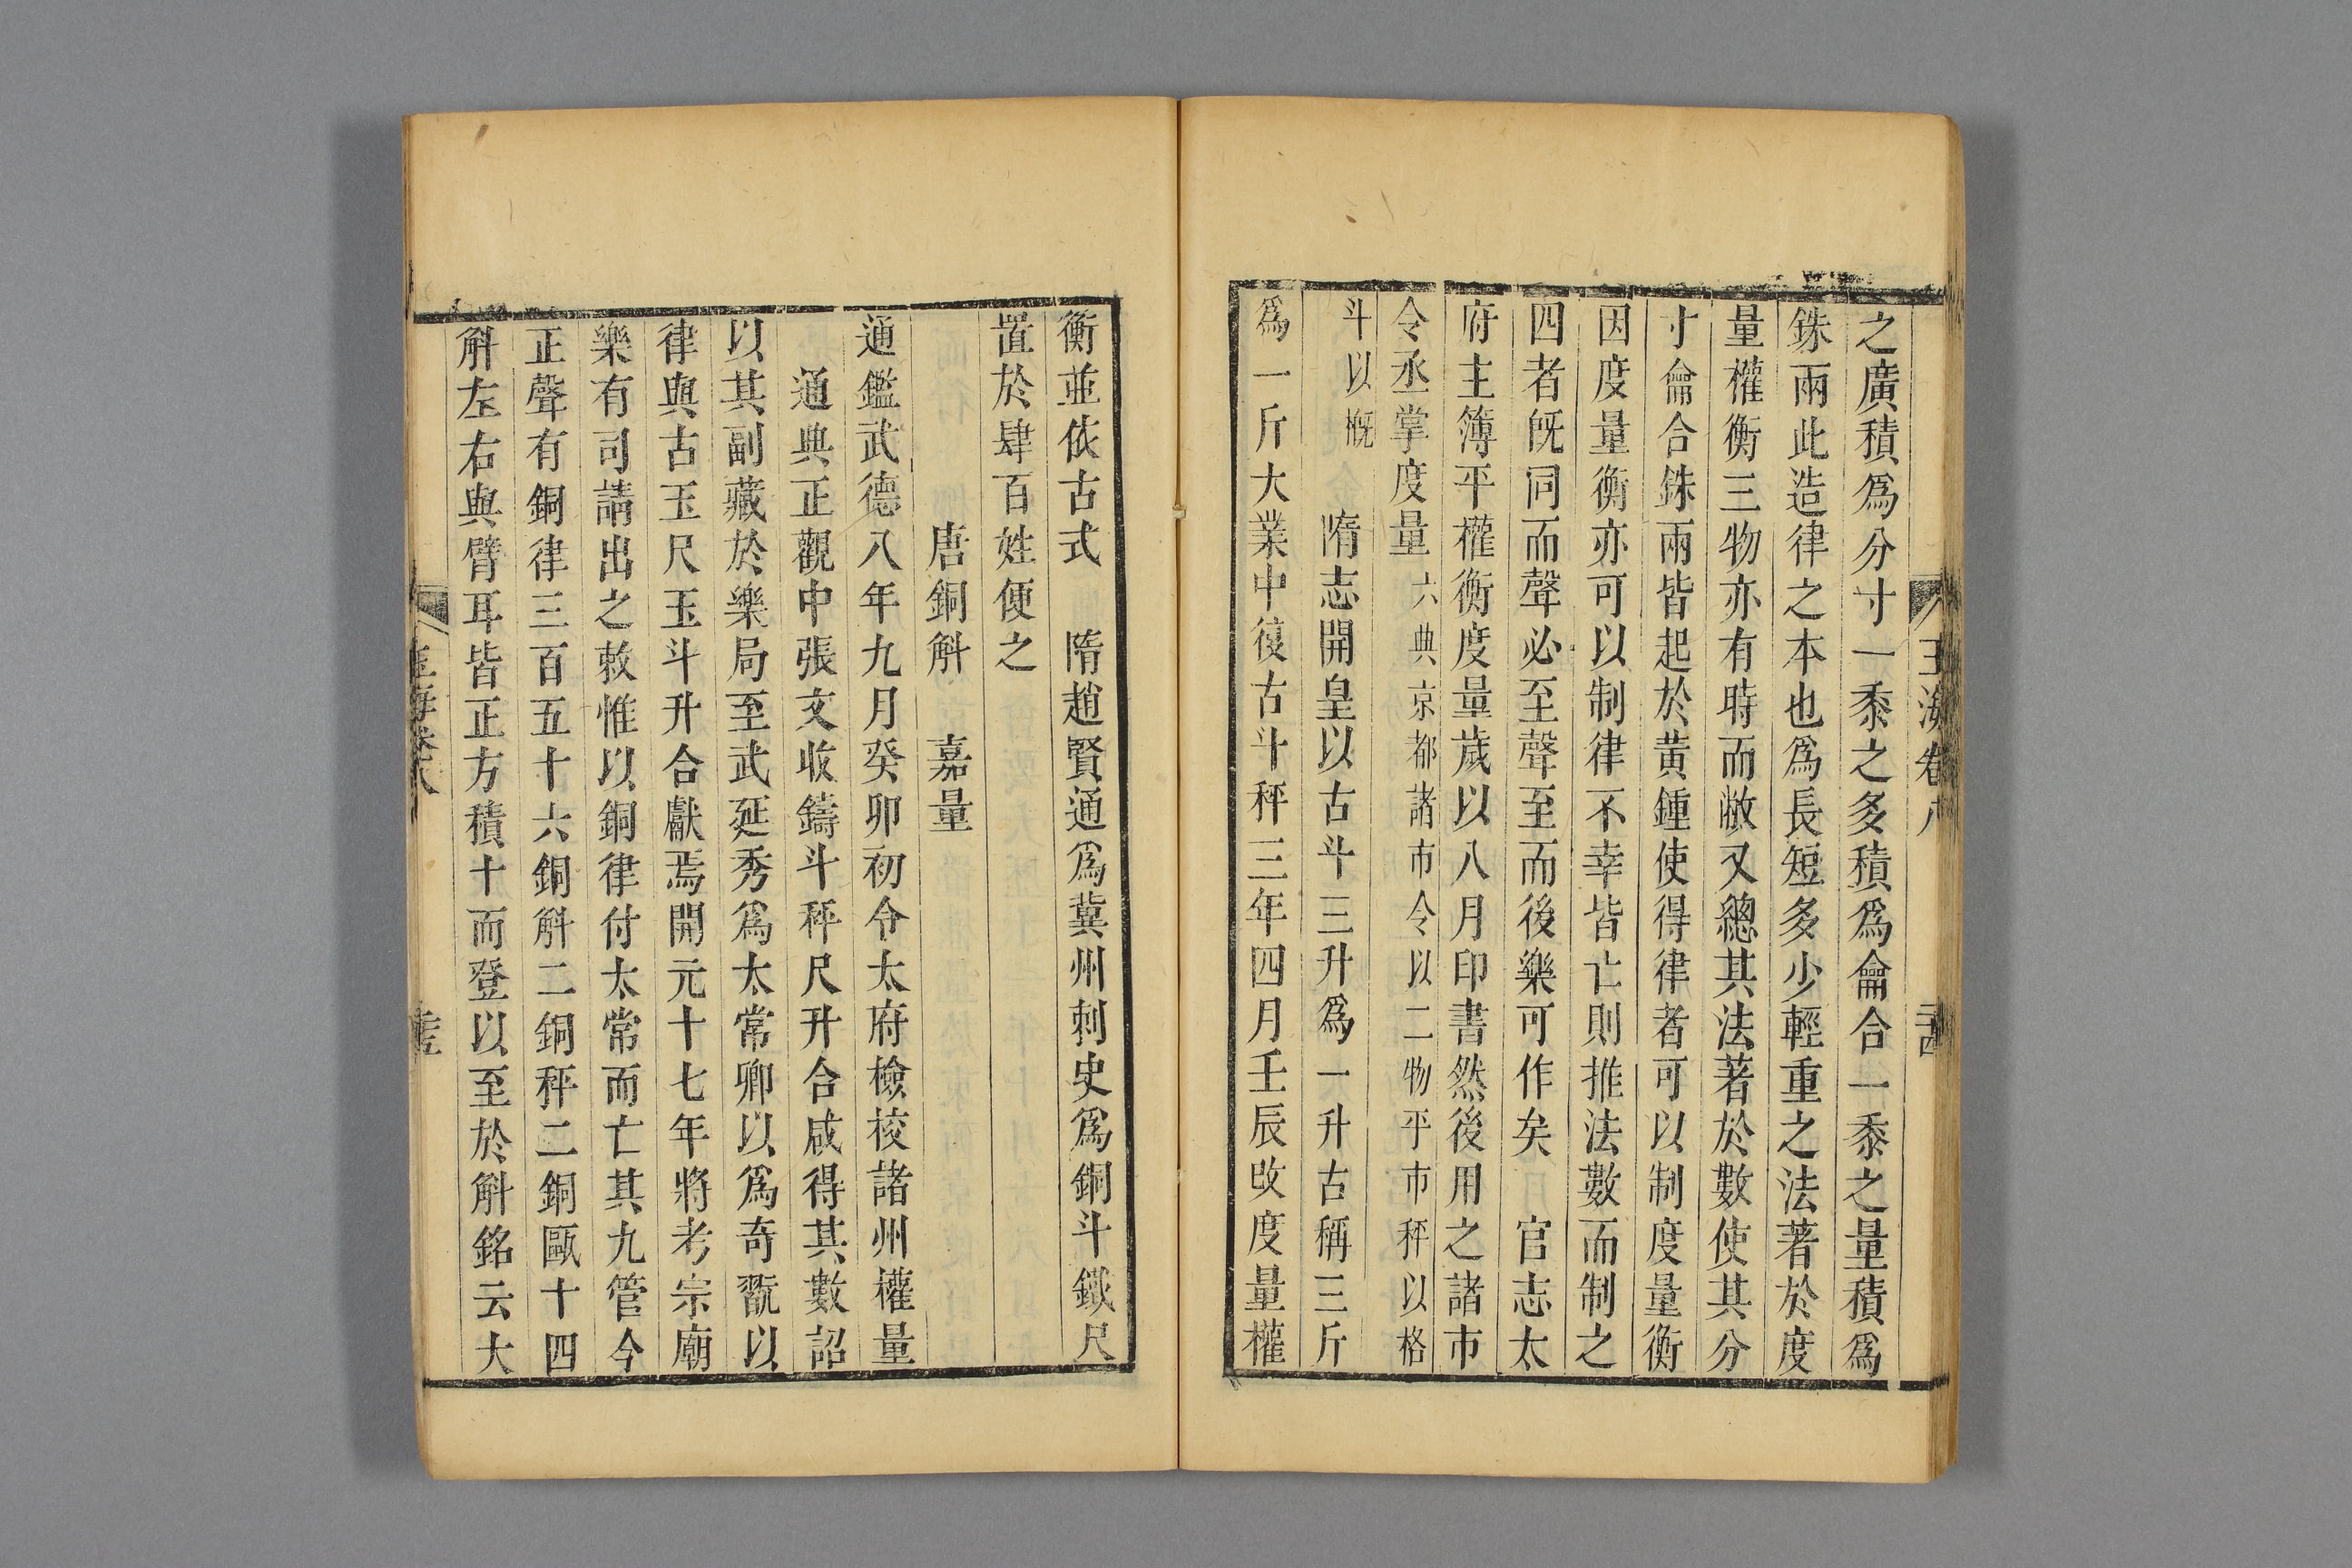 玉海卷八
之廣積爲分寸一黍之多積爲龠合一黍之量積爲
銖兩此造律之本也爲長短多少輕重之法著於度
量權衡三物亦有時而敝又總其法著於數使其分
寸龠合銖兩皆起於黃鍾使得律者可以制度量衡
因度量衡亦可以制律不幸皆亡則推法數而制之
四者旣同而聲必至聲至而後樂可作矣　官志太
府主簿平權衡度量歲以八月印書然後用之諸市
令丞掌度量六典京都諸市令以二物平市秤以格
斗以概　隋志開皇以古斗三升爲一升古稱三斤
爲一斤大業中復古斗秤三年四月壬辰改度量權
衡並依古式　隋趙賢通爲冀州刺史爲銅斗鐵尺
置於肆百姓便之
唐銅斛　嘉量
通鑑武德八年九月癸卯初令太府檢校諸州權量
通典正觀中張文收鑄斗秤尺升合咸得其數詔
以其副藏於樂局至武延秀爲太常卿以爲奇翫以
律與古玉尺玉斗升合獻焉開元十七年將考宗廟
樂有司請出之敕惟以銅律付太常而亡其九管今
正聲有銅律三百五十六銅斛二銅秤二銅甌十四
斛左右與臂耳皆正方積十而登以至於斛銘云大